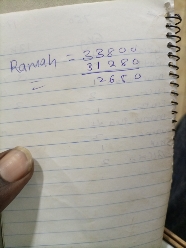 Ramah = 33800
31280
12680